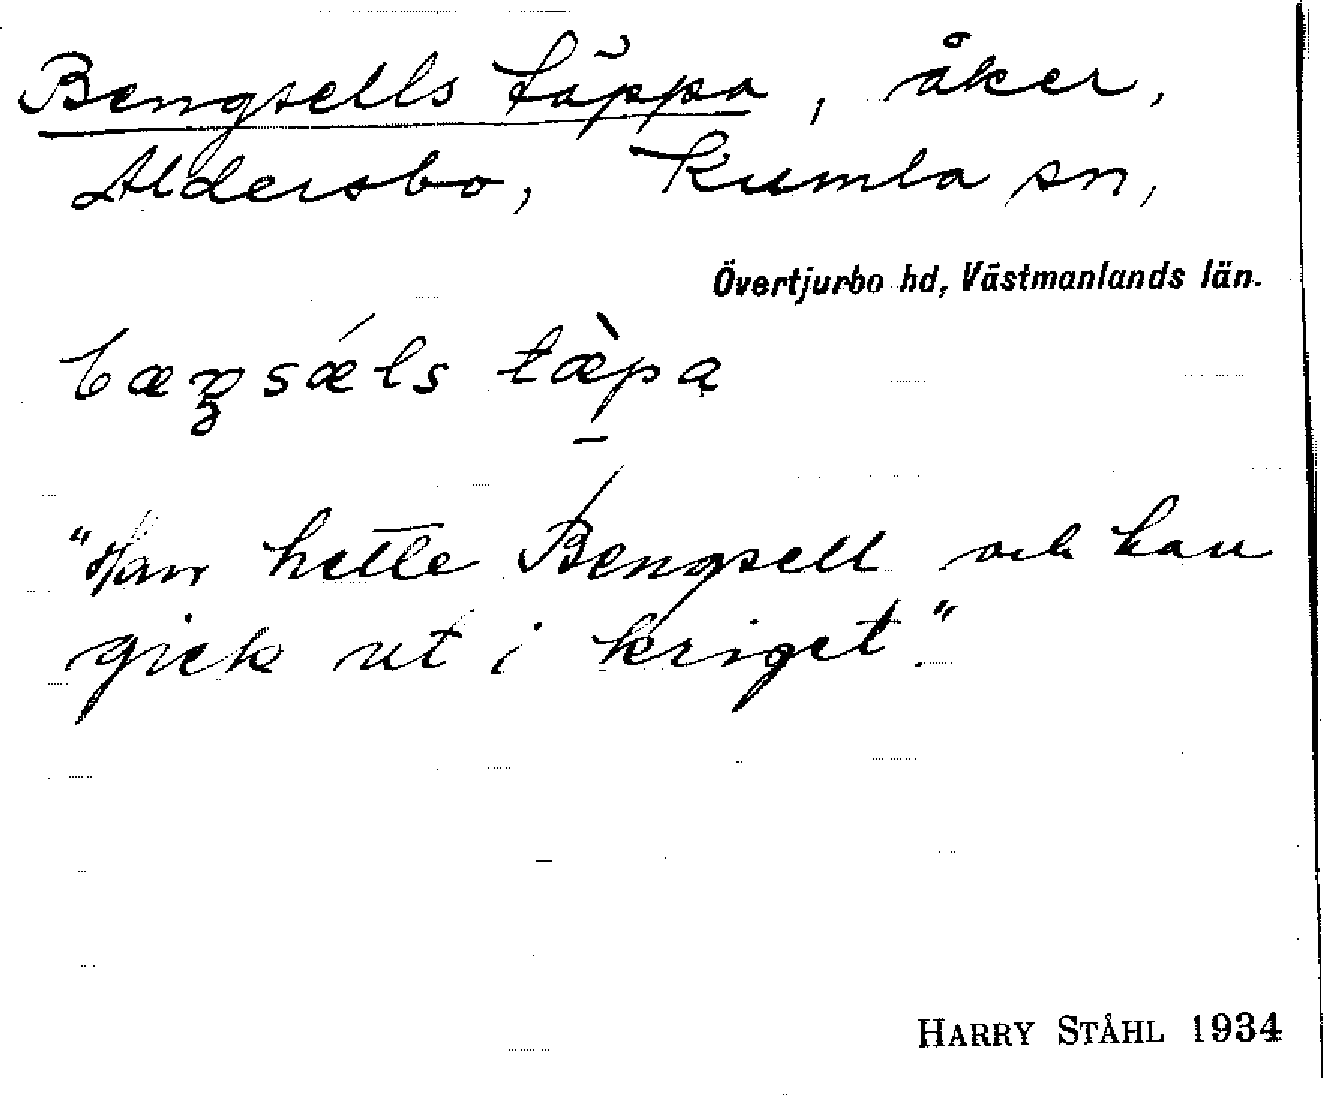 Bengsells täppa, åker,
Aldersbo, Kumla sn,
Övertjurbo hd, Västmanlands län.
bæŋsǽls tæ̀pa
"Han hette Bengsell och han
gick ut i kriget."
HARRY STÅHL 1934